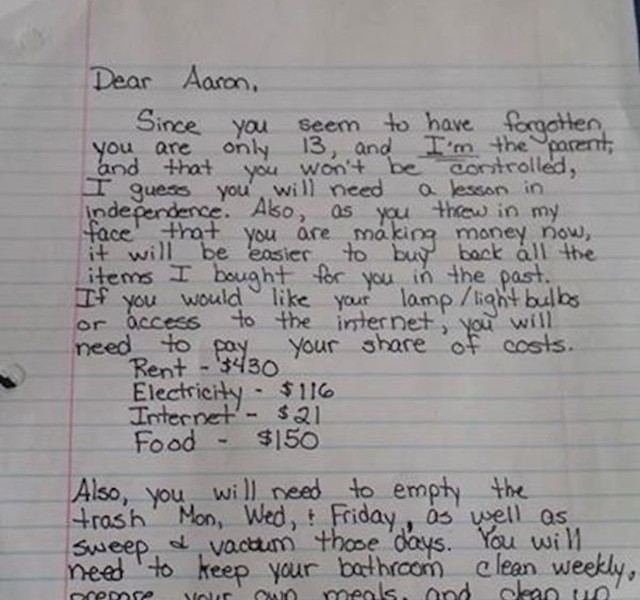 Dear Aaron,
Since you seem to have forgotten
you are only 13, and I'm the parent,
and that you won't be controlled,
I guess you will need a lesson in
independence. Also, as you threw in my
face that you are making money now,
it will be easier to buy back all the
items I bought for you in the past.
If you would like your lamp/lightbulbs
or access to the internet, you will
need to pay your share of costs.
Rent - $430
Electricity - $116
Internet - $21
Food - $150
Also, you will need to empty the
trash Mon, Wed, & Friday, as well as
sweep & vacuum those days. You will
need to keep your bathroom clean weekly,
prepare your own meals, and clean up